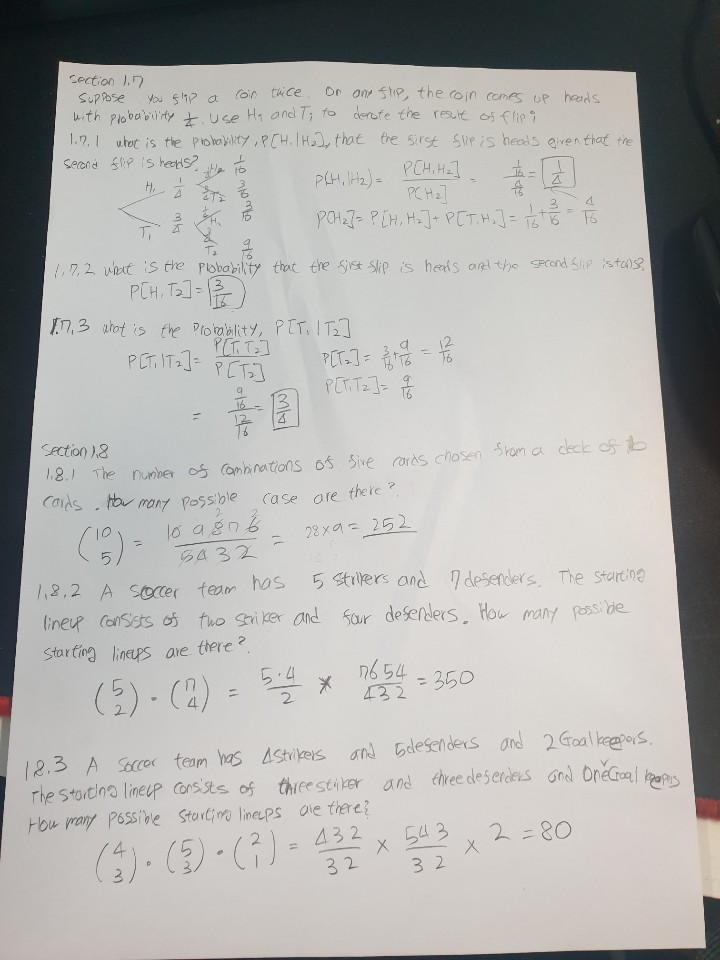 Section 1.7
Suppose you flip a coin twice. On any flip, the coin comes up heads
with probability 1/4. Use Hi and Ti to denote the result of flip i
1.7.1 what is the probability, P[H1|H2], that the first flip is heads given that the
second flip is heads?
H1 1/4 1/4 H2 1/16
3/4 T2 3/16
T1 3/4 1/4 H2 3/16
3/4 T2 9/16
P(H1|H2) = P[H1H2] / P[H2] = (1/16) / (4/16) = 1/4
P[H2] = P[H1H2] + P[T1H2] = 1/16 + 3/16 = 4/16
1.7.2 what is the probability that the first flip is heads and the second flip is tails?
P[H1T2] = 3/16
1.7.3 what is the probability, P[T1|T2]
P[T1|T2] = P[T1T2] / P[T2] P[T2] = 3/16 + 9/16 = 12/16
P[T1T2] = 9/16
= (9/16) / (12/16) = 3/4
Section 1.8
1.8.1 The number of combinations of five cards chosen from a deck of 10
cards. How many possible case are there?
(10 5) = 10 9 8 7 6 / 5 4 3 2 = 28 x 9 = 252
1.8.2 A soccer team has 5 strikers and 7 defenders. The starting
lineup consists of two striker and four defenders. How many possible
starting lineups are there?
(5 2) · (7 4) = 5·4 / 2 × 7 6 5 4 / 4 3 2 = 350
1.8.3 A soccer team has 4 strikers and 5 defenders and 2 Goal keepers.
The starting lineup consists of three striker and three defenders and one Goal keepers
How many possible starting lineups are there?
(4 3) · (5 3) · (2 1) = 4 3 2 / 3 2 × 5 4 3 / 3 2 × 2 = 80